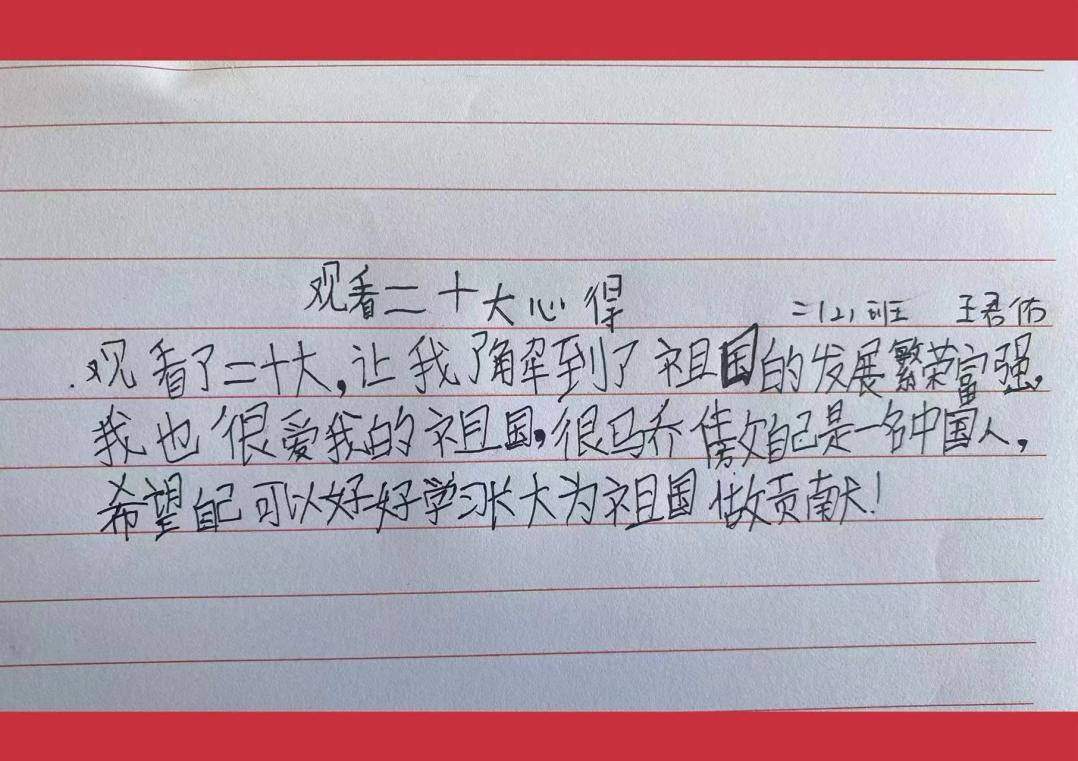 观看二十大心得
二(2)班 王君佑
观看了二十大,让我了解到了祖国的发展繁荣富强,
我也很爱我的祖国,很骄傲自己是一名中国人,
希望自己可以好好学习长大为祖国做贡献!